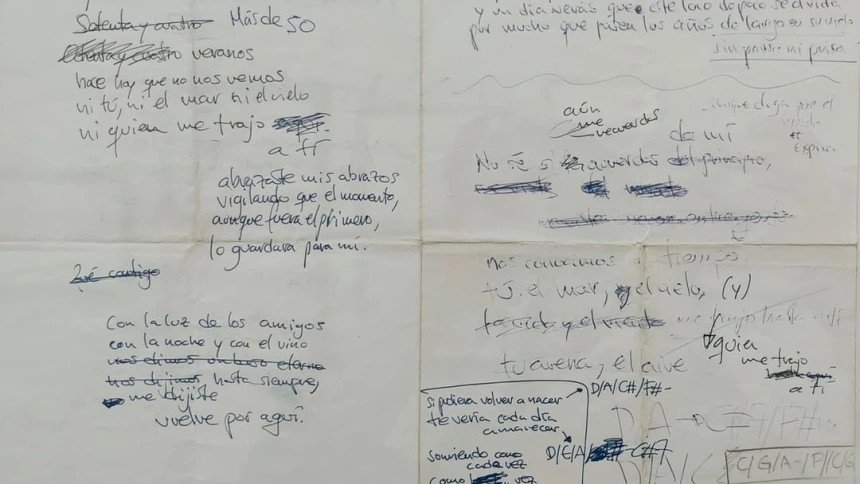 Setenta y cuatro Más de 50
Ochenta y cuatro veranos
hace hoy que no nos vemos
ni tú, ni el mar ni el cielo
ni quien me trajo
a tí
abrazaste mis abrazos
vigilando que el momento,
aunque fuera el primero,
lo guardara para mí.
contigo
Con la luz de los amigos
con la noche y con el vino
nos dimos un beso eterno
nos dijimos hasta siempre,
me dijiste
vuelve por aquí.
y un día verás que este loco de poco se olvida
por mucho que pasen los años de largo en su vida
sin pausa ni prisa
aún
me
recuerdas
de mí
No sé si acuerdas del principio,
nos conocimos tiempo
tú, el mar, y el cielo, (y)
tu arena, el aire
quien
me trajo
a tí
si pudiera volver a nacer
te vería cada día
amanecer
sonriendo como
cada vez
como vez
D/A/C#/F#-
D/E/A/ C#7
D A C#/F#
D/A/C
C/G/A-/F//C/G